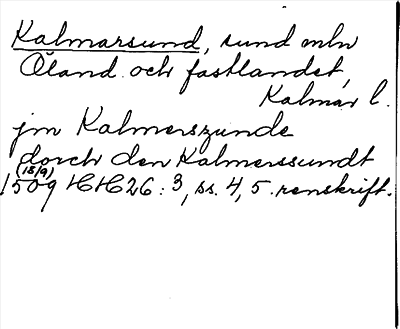 Kalmarsund, sund mln
Öland och fastlandet,
Kalmar l.
jm Kalmerszunde
dorch den Kalmerssundt
(15/9)
1509 HH 26:3, ss. 4, 5. renskrift.